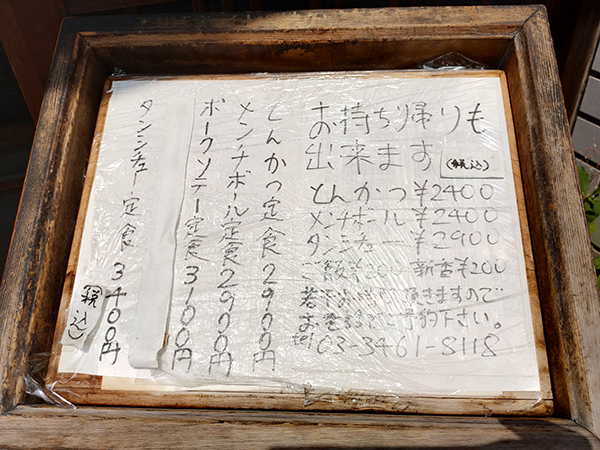 お持ち帰りも
出来ます
(税込)
とんかつ ¥2400
メンチボール ¥2400
タンシチュー ¥2900
ご飯¥200 新香¥200
頂きますので
ご予約下さい。
03-3461-8118
とんかつ定食 2900円
メンチボール定食 2900円
ポークソテー定食 3100円
タンシチュー定食 3400円
(税込)